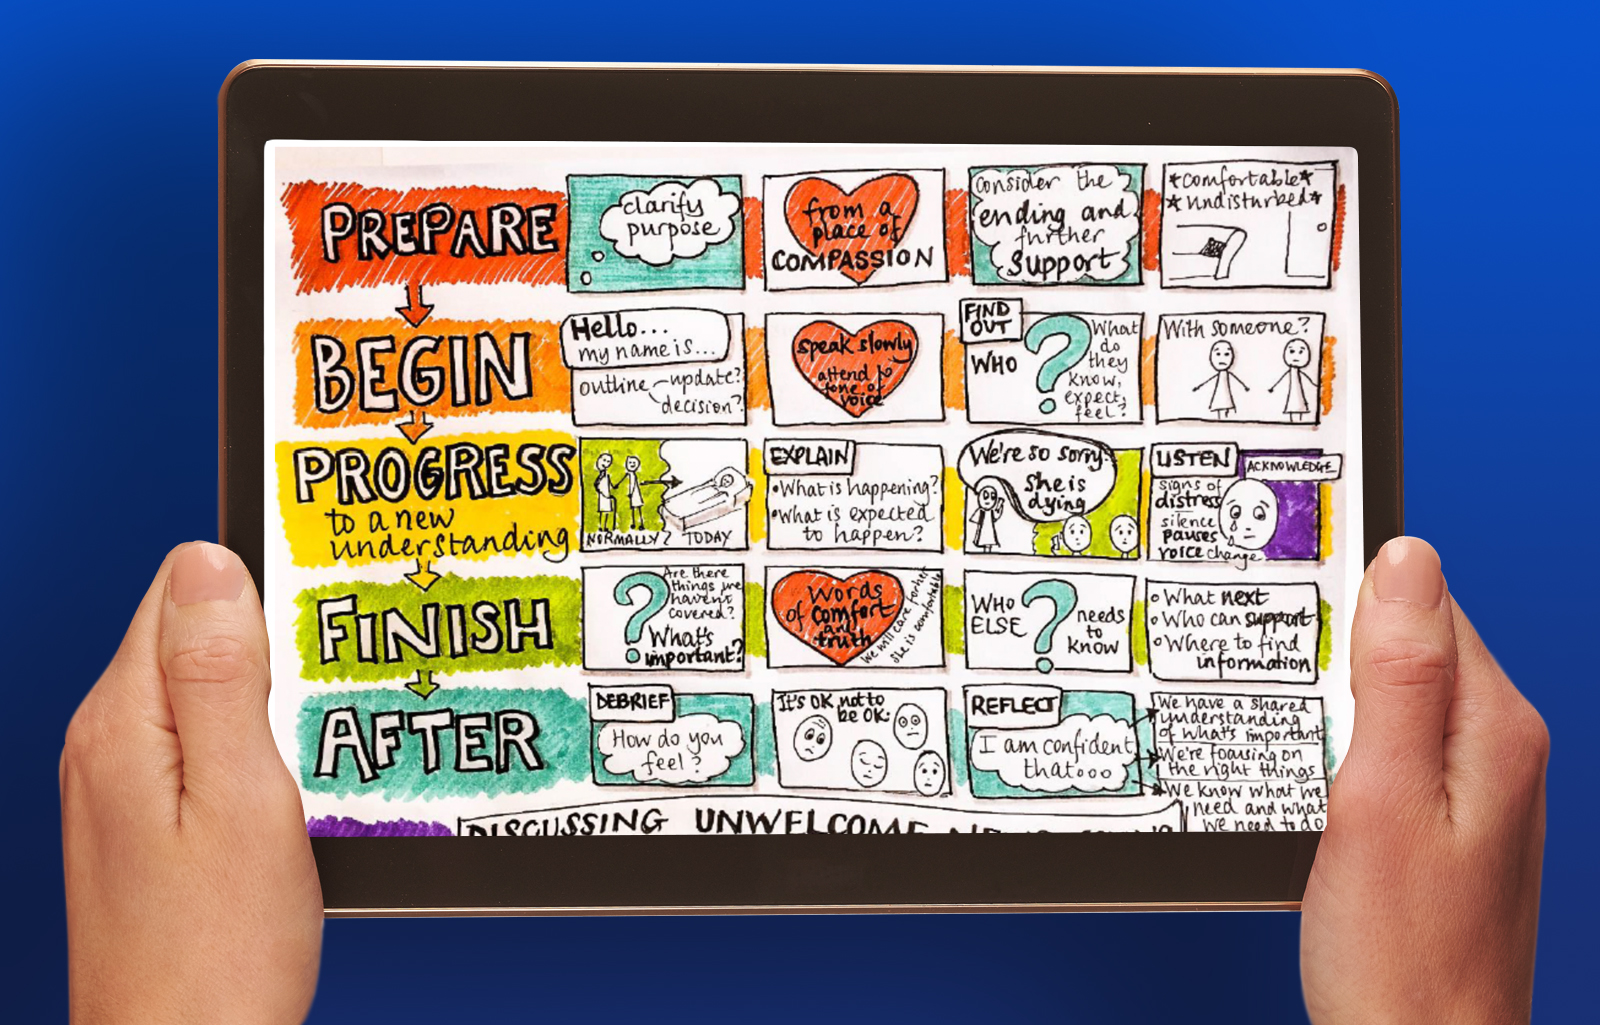 PREPARE
clarify
purpose
from a
place of
COMPASSION
Consider the
ending and
further
Support
*Comfortable*
*Undisturbed*
BEGIN
Hello...
my name is...
outline update?
decision?
Speak slowly
attend to
tone of
voice
FIND
OUT
WHO
?
What
do
they
know,
expect,
feel?
With someone?
PROGRESS
to a new
understanding
NORMALLY? TODAY
EXPLAIN
•What is happening?
•What is expected
to happen?
We're so sorry.
She is
dying
LISTEN
ACKNOWLEDGE
signs of
distress
silence
pauses
voice change
FINISH
?
Are there
things we
haven't
covered?
What's
important?
Words
of comfort
and
truth
We will care for her
She is comfortable
WHO
ELSE
?
needs
to
know
What next
Who can support
Where to find
information
AFTER
DEBRIEF
How do you
feel?
It's OK not to
be OK.
REFLECT
I am confident
that...
We have a shared
understanding
of what's important
We're focusing on
the right things
We know what we
need and what
we need to do
DISCUSSING UNWELCOME